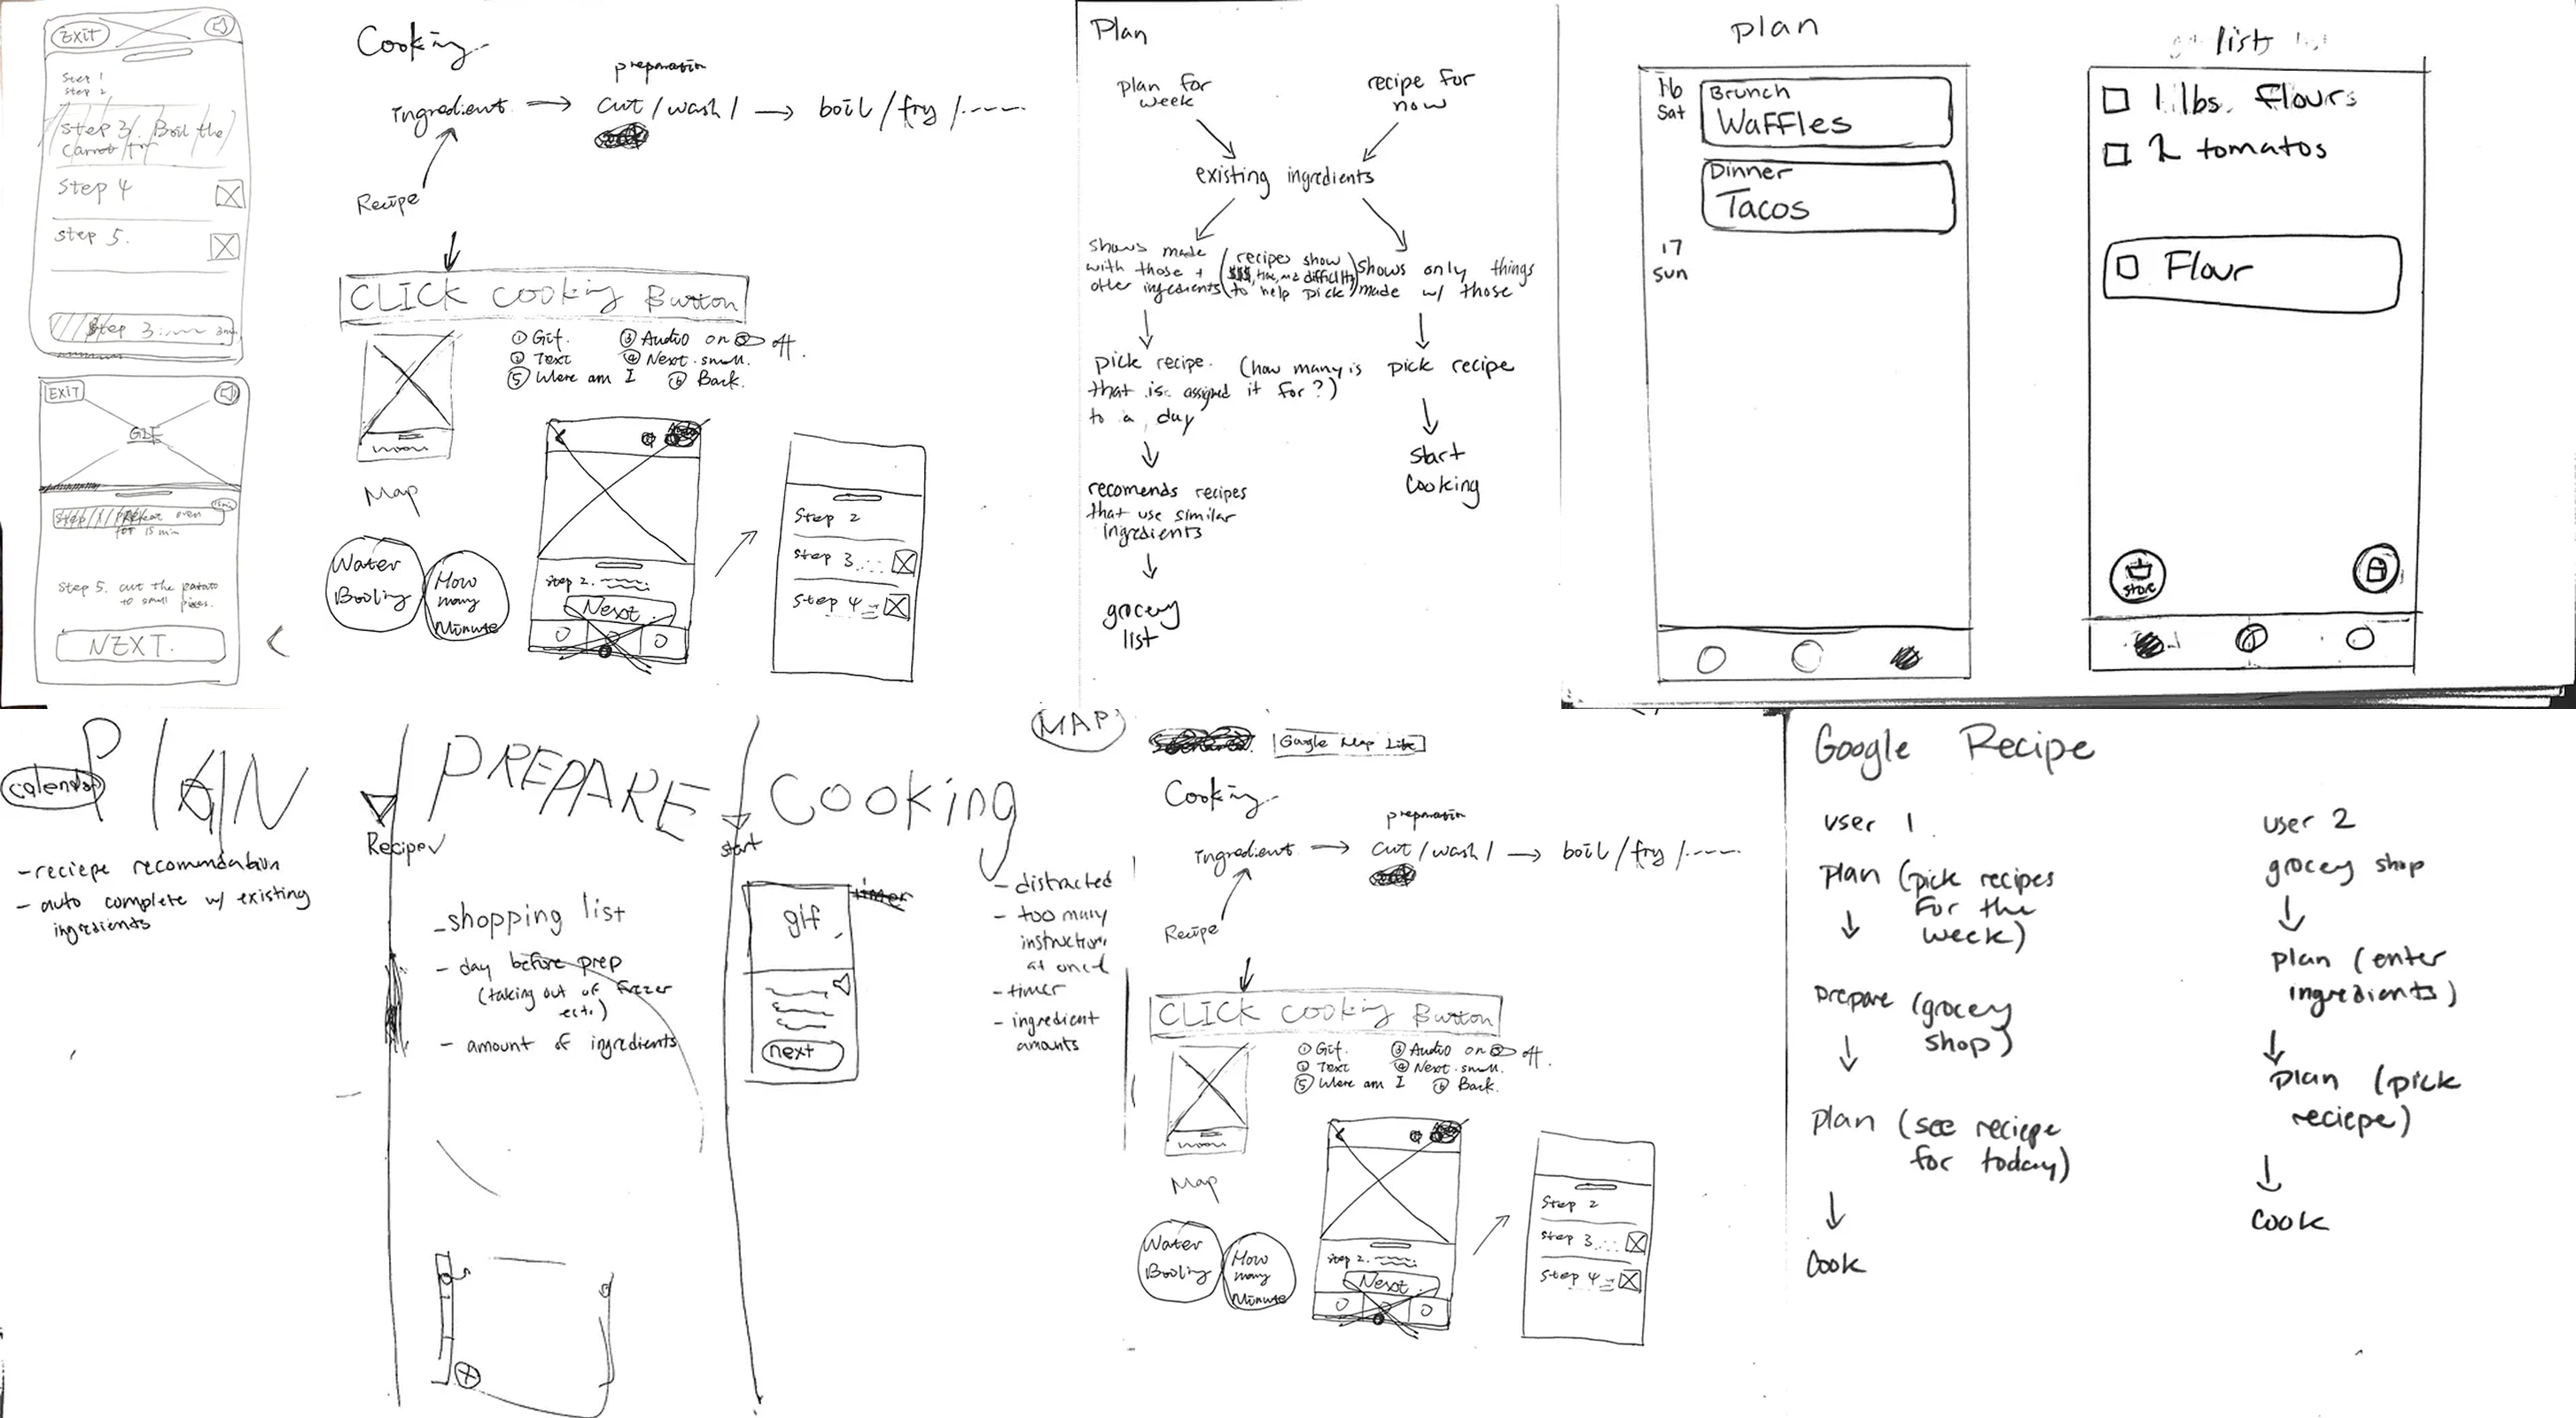 EXIT
Step 1
Step 2
Step 3. Boil the
Carrot for
Step 4
Step 5.
Step 3:
EXIT
GIF
15min
Step 1 / Preheat oven
for 15 min
Step 5. cut the patato
to small pieces.
NEXT.
Cooking
preparation
ingredient → cut / wash / → boil / fry / ----
Recipe
CLICK Cooking Button
① Gif. ③ Audio on off.
② Text ④ Next. small.
⑤ Were am I ⑥ Back.
Map
Water
Booling
How
many
Minute
Step 2.
Next
Step 2
Step 3...
Step 4
Plan
plan for
week
recipe for
now
existing ingredients
shows made
with those +
other ingredients
(recipes show
$$$, time, and difficulty
to help pick)
shows only things
made w/ those
pick recipe.
that is assigned
to a day
(how many is
it for?)
pick recipe
start
Cooking
recomends recipes
that use similar
ingredients
grocery
list
plan
16
Sat
Brunch
Waffles
Dinner
Tacos
17
Sun
list
1 lbs. Flours
2 tomatos
Flour
store
PlAN
calendar
- reciepe recomendation
- auto complete w/ existing
ingredients
Recipe
PREPARE
- shopping list
- day before prep
(taking out of frezer
ect.)
- amount of ingredients
start
Cooking
timer
gif
next
- distracted
- too many
instructions
at once
- timer
- ingredient
amounts
MAP
Google Map Like
Cooking
preparation
ingredient → cut / wash / → boil / fry / ----
Recipe
CLICK Cooking Button
① Gif. ③ Audio on off.
② Text ④ Next. small.
⑤ Were am I ⑥ Back.
Map
Water
Booling
How
many
Minute
Step 2.
Next
Step 2
Step 3...
Step 4
Google Recipe
user 1
plan (pick recipes
for the
week)
prepare (grocery
shop)
plan (see reciepe
for today)
Cook
user 2
grocery shop
plan (enter
ingredients)
plan (pick
reciepe)
Cook